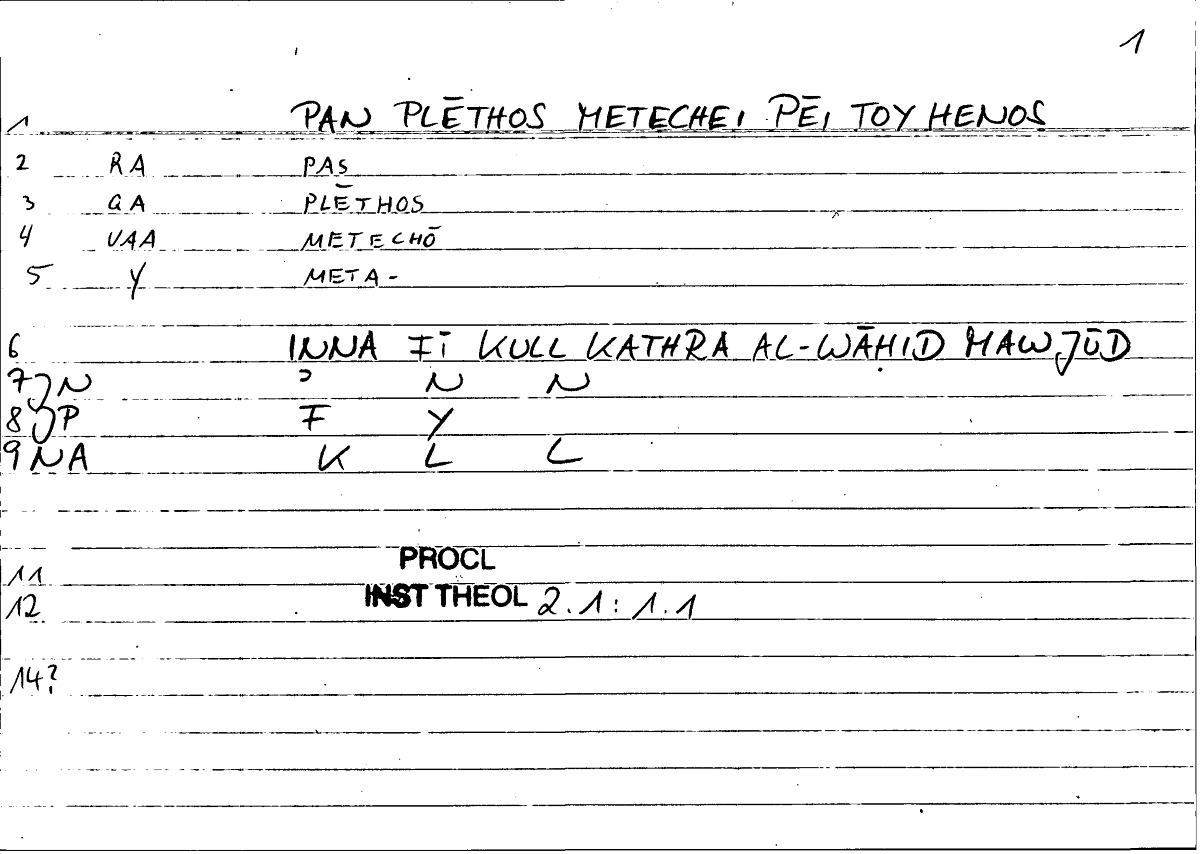 1
1 PAN PLĒTHOS METECHEI PĒI TOY HENOS
2 RA PAS
3 GA PLĒTHOS
4 VAA METECHŌ
5 Y META-
6 INNA FĪ KULL KATHRA AL-WĀḤID MAWJŪD
7 JN ʾ N N
8 JP F Y
9 NA K L L
11 PROCL
12 INST THEOL 2.1:1.1
14?